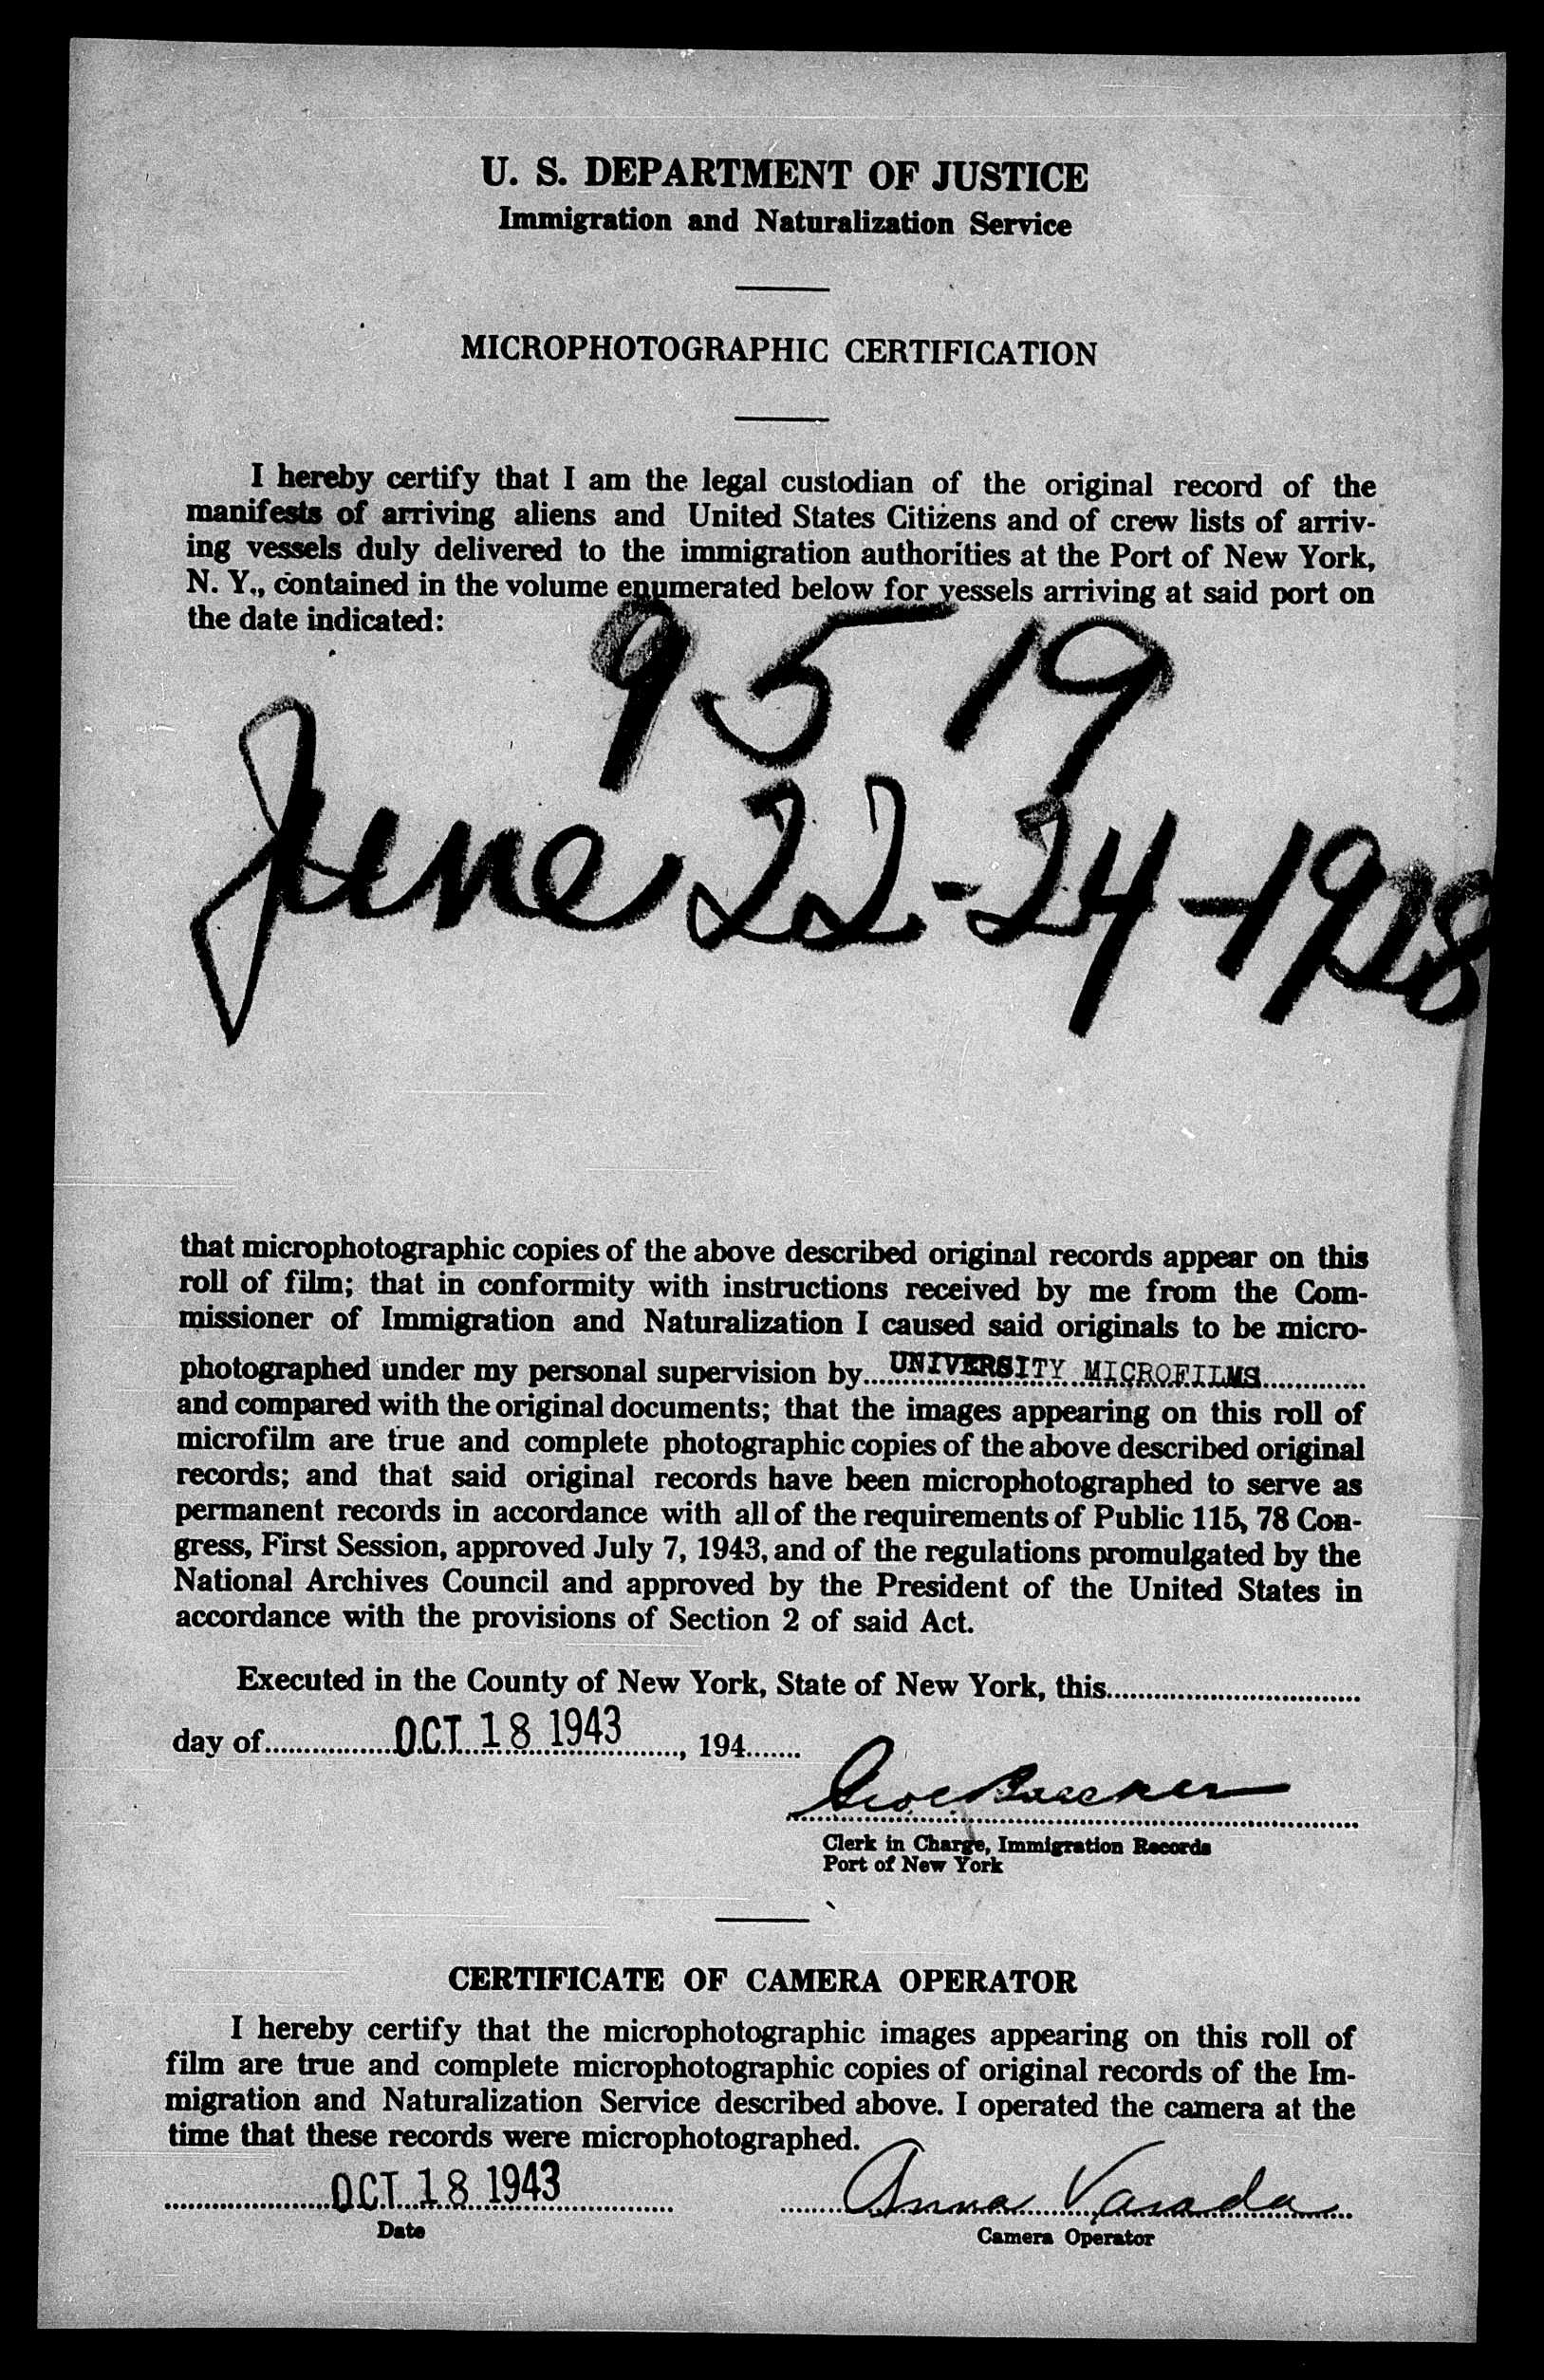 U. S. DEPARTMENT OF JUSTICE
Immigration and Naturalization Service
MICROPHOTOGRAPHIC CERTIFICATION
I hereby certify that I am the legal custodian of the original record of the
manifests of arriving aliens and United States Citizens and of crew lists of arriv-
ing vessels duly delivered to the immigration authorities at the Port of New York,
N. Y., contained in the volume enumerated below for vessels arriving at said port on
the date indicated:
9519
June 22-24-1928
that microphotographic copies of the above described original records appear on this
roll of film; that in conformity with instructions received by me from the Com-
missioner of Immigration and Naturalization I caused said originals to be micro-
photographed under my personal supervision by UNIVERSITY MICROFILMS
and compared with the original documents; that the images appearing on this roll of
microfilm are true and complete photographic copies of the above described original
records; and that said original records have been microphotographed to serve as
permanent records in accordance with all of the requirements of Public 115, 78 Con-
gress, First Session, approved July 7, 1943, and of the regulations promulgated by the
National Archives Council and approved by the President of the United States in
accordance with the provisions of Section 2 of said Act.
Executed in the County of New York, State of New York, this
day of OCT 18 1943, 194
Clerk in Charge, Immigration Records
Port of New York
CERTIFICATE OF CAMERA OPERATOR
I hereby certify that the microphotographic images appearing on this roll of
film are true and complete microphotographic copies of original records of the Im-
migration and Naturalization Service described above. I operated the camera at the
time that these records were microphotographed.
OCT 18 1943 Anna Varada
Date
Camera Operator